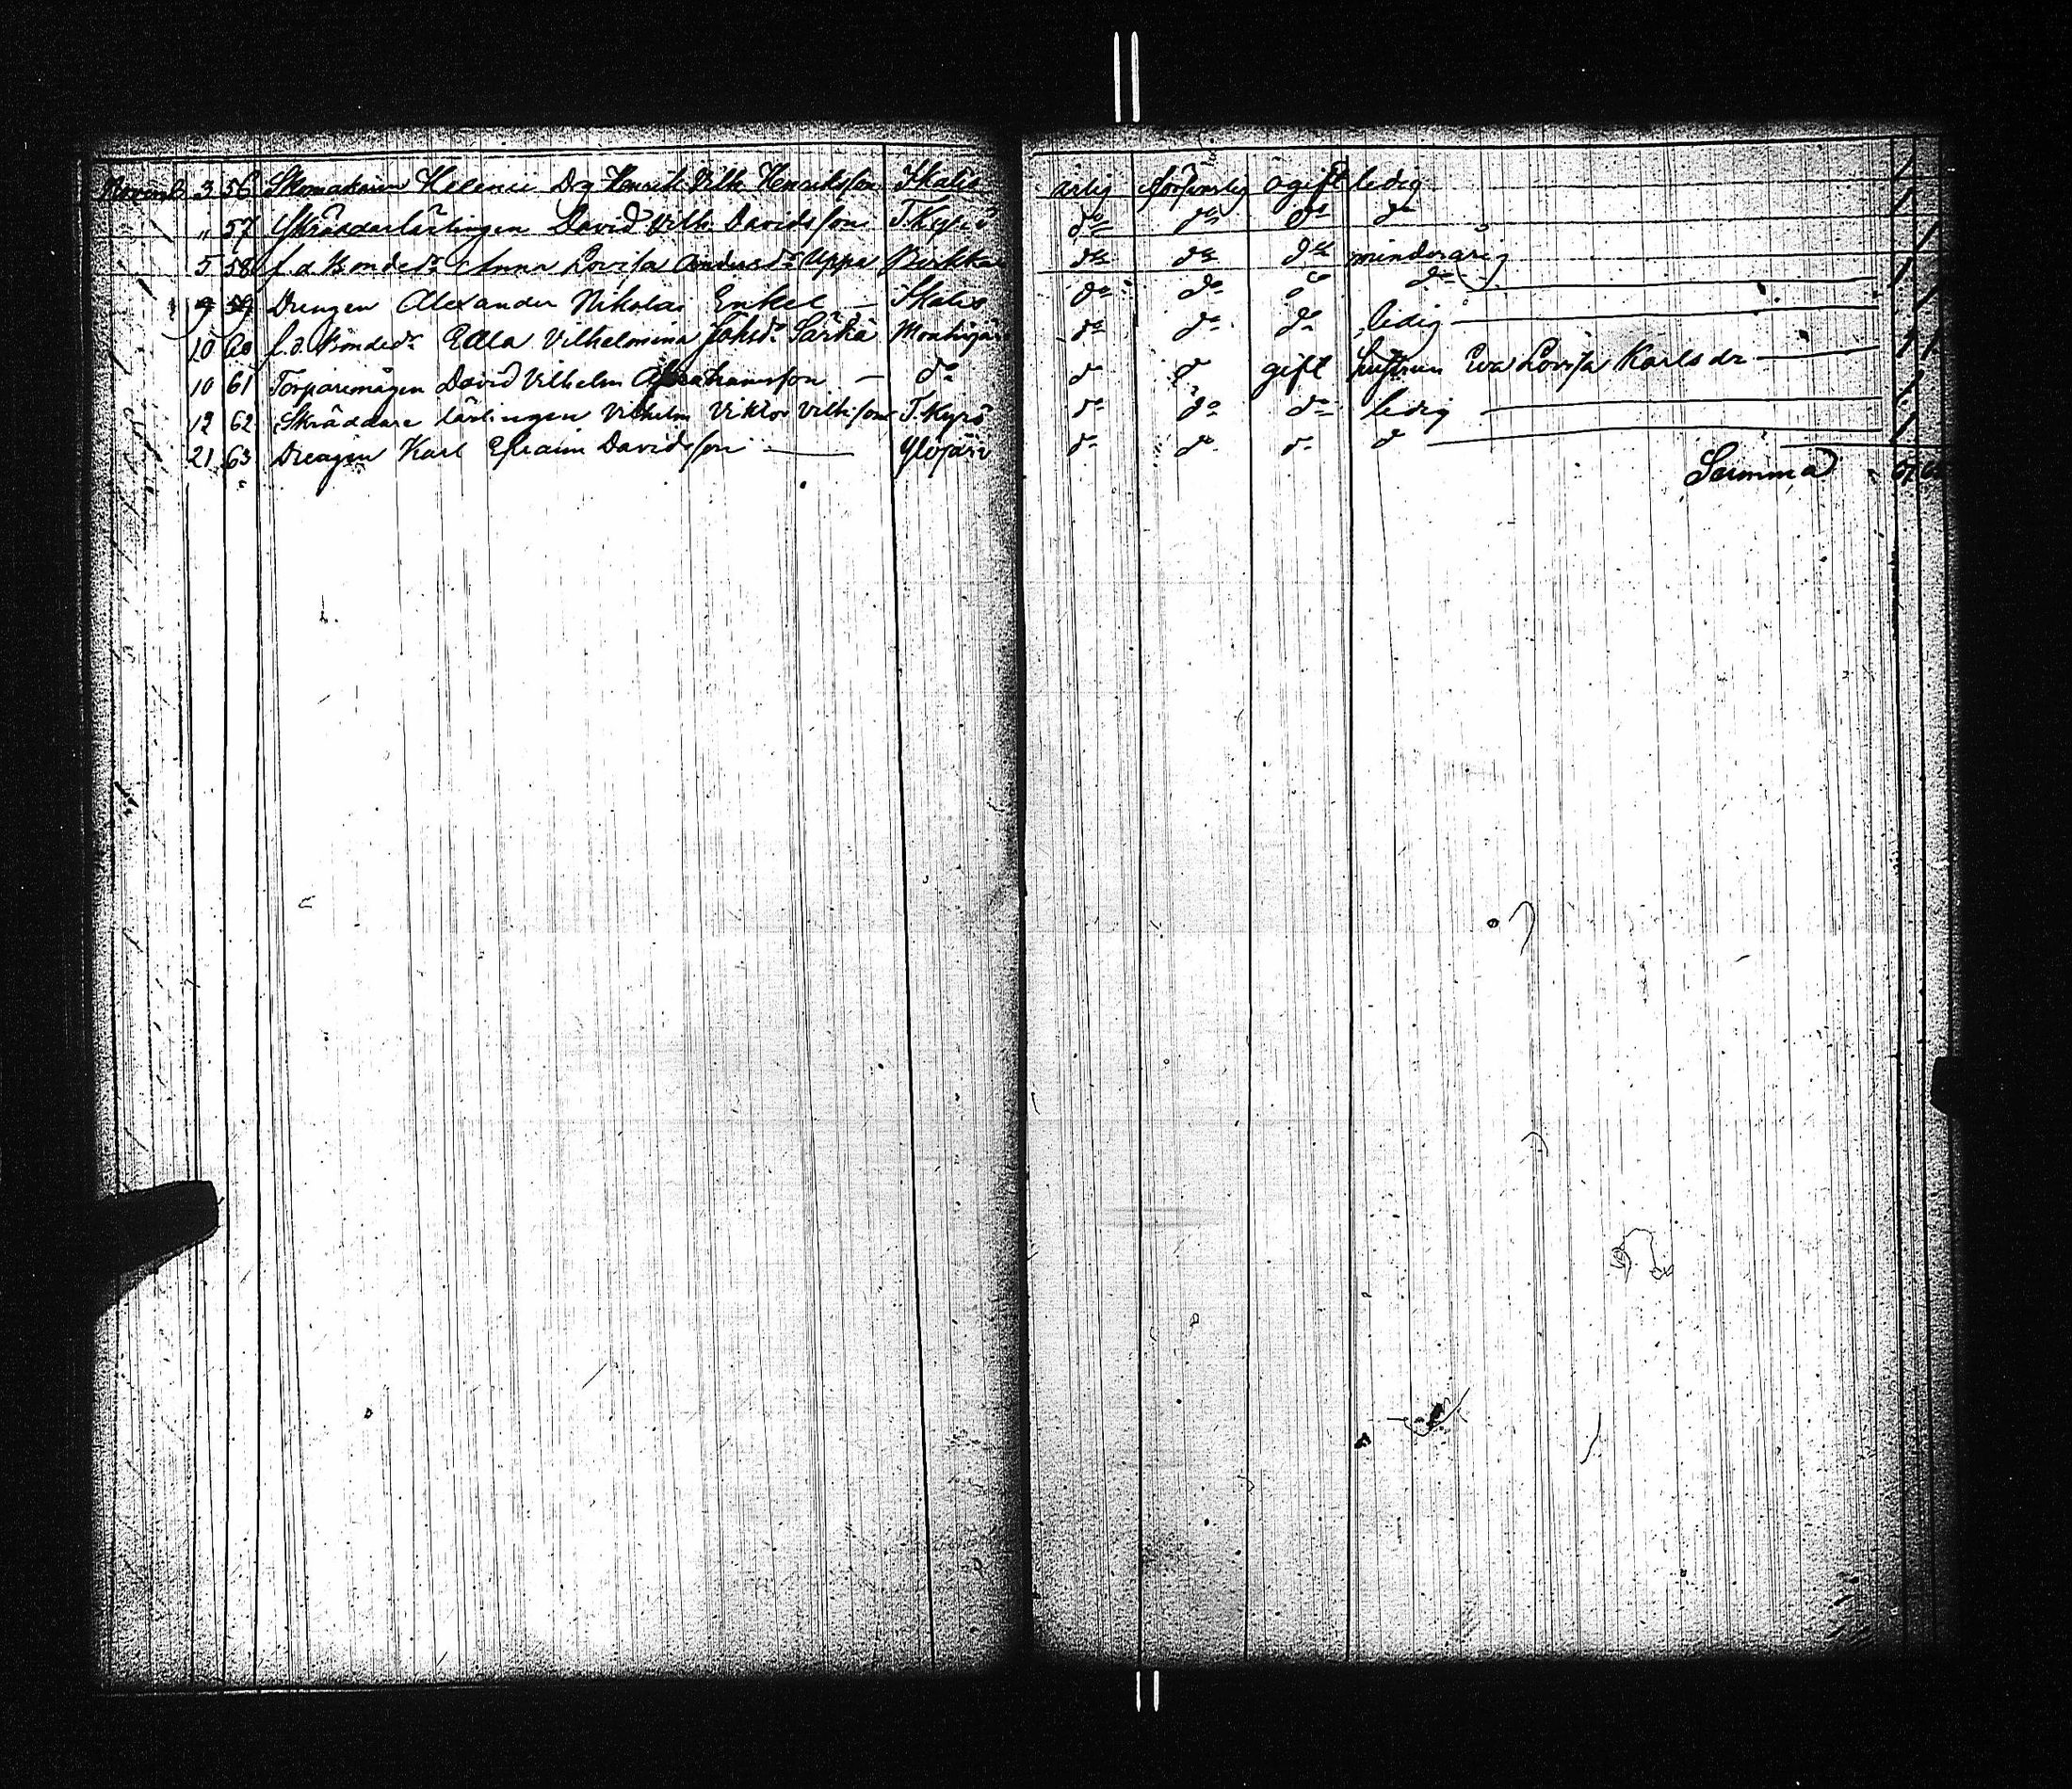 Novemb 3 56 Skomakaren Helenii Drg Henrik Vilh. Henriksson Ikalis ärlig försvarlig ogift ledig 1
" 57 Skräddarlärlingen David Vilh. Davidsson T.Kyrö do do do do 1
5 58 f. d. Bonded:r Anna Lovisa Andersd:r Uppa Birkkala do do do minderårig 1
9 59 Drengen Alexander Nikolai Enkel — Ikalis do do do do 1
10 60 f. d. Bonded:r Edla Vilhelmina Johsd:r Särkä do do do ledig 1
10 61 Torparemågen David Vilhelm Abrahamsson — do do do gift hustrun Eva Lovisa Karlsdr 1 1
12 62 Skräddare lärlingen Vilhelm Viktor Vilh:sson T.Kyrö do do do ledig 1
21 63 Drengen Karl Efraim Davidsson — Ylöjärvi do do do do 1
Summa